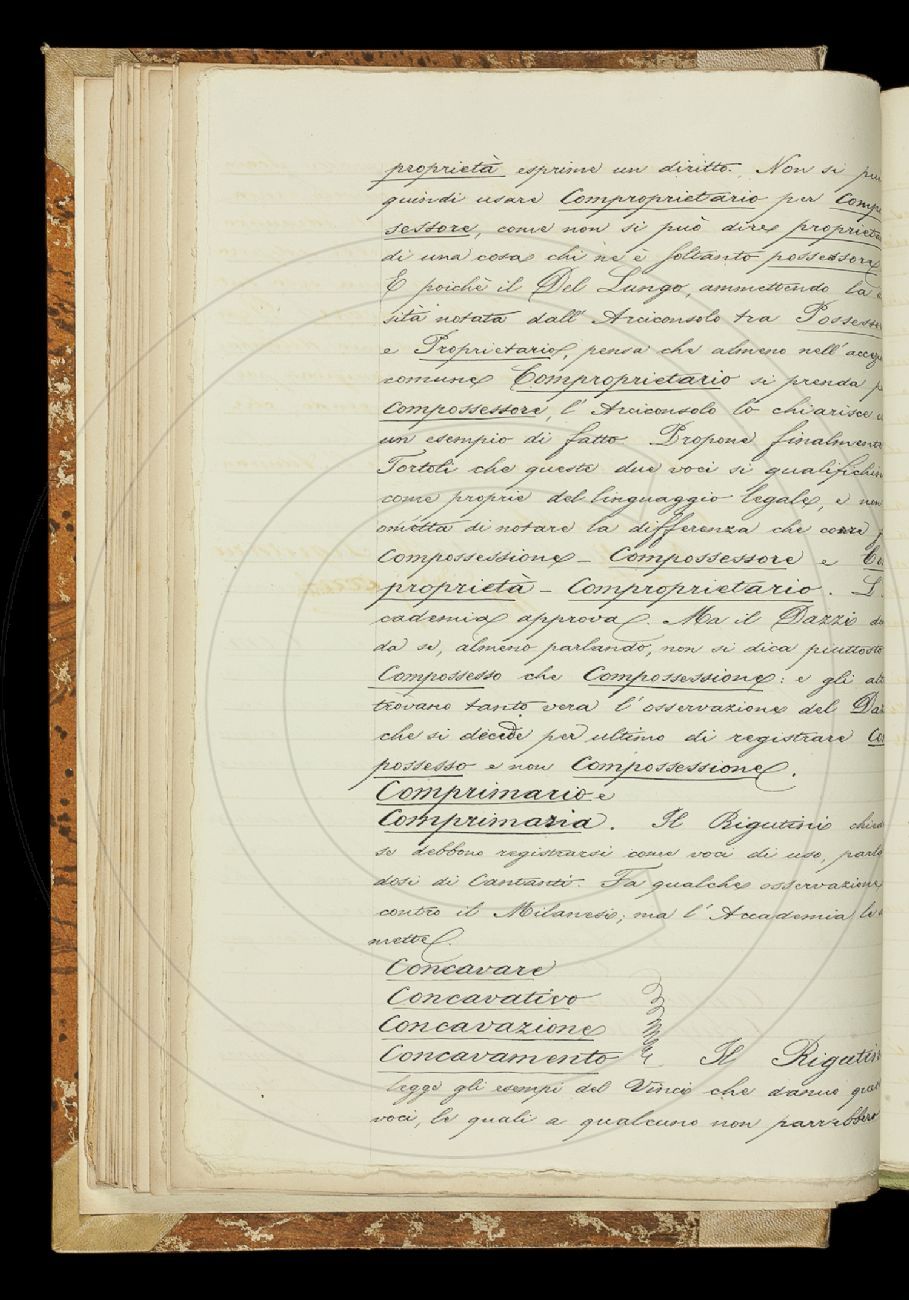 proprietà esprime un diritto. Non si può
quindi usare Comproprietario per Compos
sessore, come non si può dire proprieta
di una cosa chi ne è soltanto possessore
E poichè il Del Lungo, ammettendo la
sità notata dall'Arciconsolo tra Possesso
e Proprietario, pensa che almeno nell'accez
comune Comproprietario si prenda p
Compossessore, l'Arciconsolo lo chiarisce
un esempio di fatto Propone finalmente
Tortoli che queste due voci si qualifichin
come proprie del linguaggio legale, e non
ometta di notare la differenza che corre
Compossessione - Compossessore e Co
proprietà - Comproprietario. L
cademia approva. Ma il Dazzi do
da se, almeno parlando, non si dica piuttosto
Compossesso che Compossessione: e gli alt
trovano tanto vera l'osservazione del Daz
che si decide per ultimo di registrare Co
possesso e non Compossessione.
Comprimario e
Comprimaria. Il Rigutini chied
se debbono registrarsi come voci di uso, parla
dosi di Cantanti. Fa qualche osservazione
contro il Milanesi; ma l'Accademia le
mette.
Concavare
Concavativo
Concavazione
Concavamento Il Rigutin
legge gli esempi del Vinci che danno ques
voci, le quali a qualcuno non parrebbero